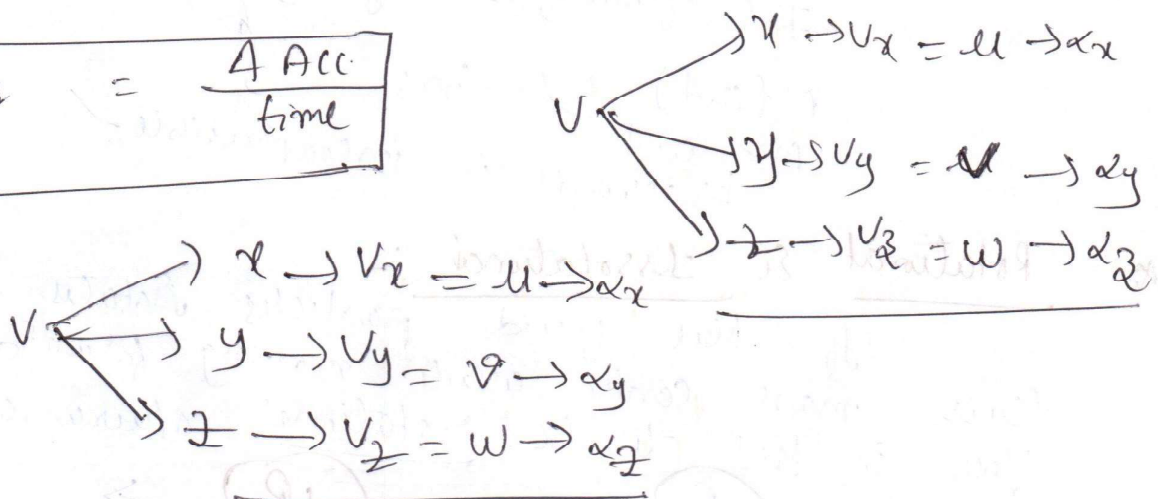 = Δ Acc / time
V
x → Vx = u → αx
y → Vy = v → αy
z → Vz = w → αz
V
x → Vx = u → αx
y → Vy = v → αy
z → Vz = w → αz